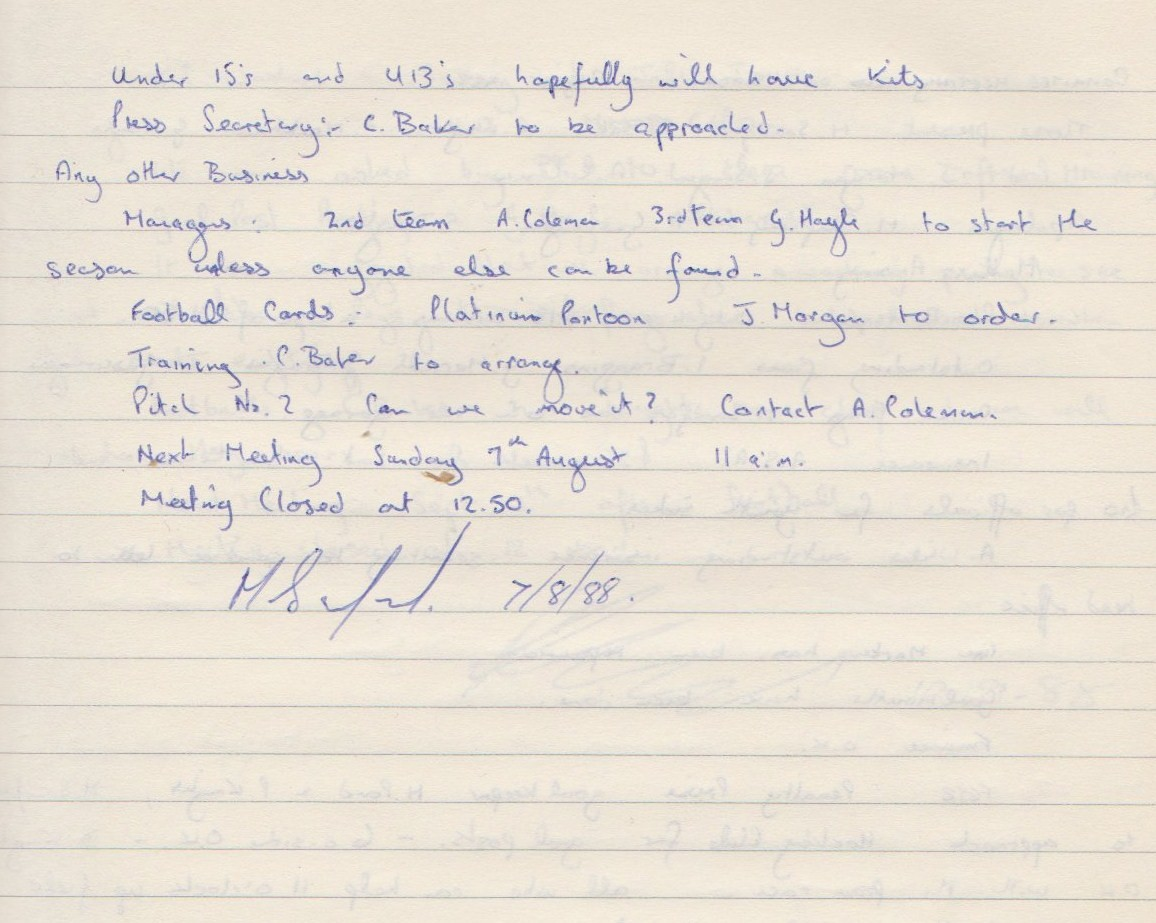 Under 15's and U13's hopefully will have Kits
Press Secretary:- C. Baker to be approached.
Any other Business
Managers: 2nd team A. Coleman 3rd team G. Hayle to start the
season unless anyone else can be found.
Football Cards:- Platinum Pontoon J. Morgan to order.
Training. C. Baker to arrange
Pitch No. 2 Can we move it? Contact A. Coleman.
Next Meeting Sunday 7th August 11 a.m.
Meeting Closed at 12.50.
7/8/88.